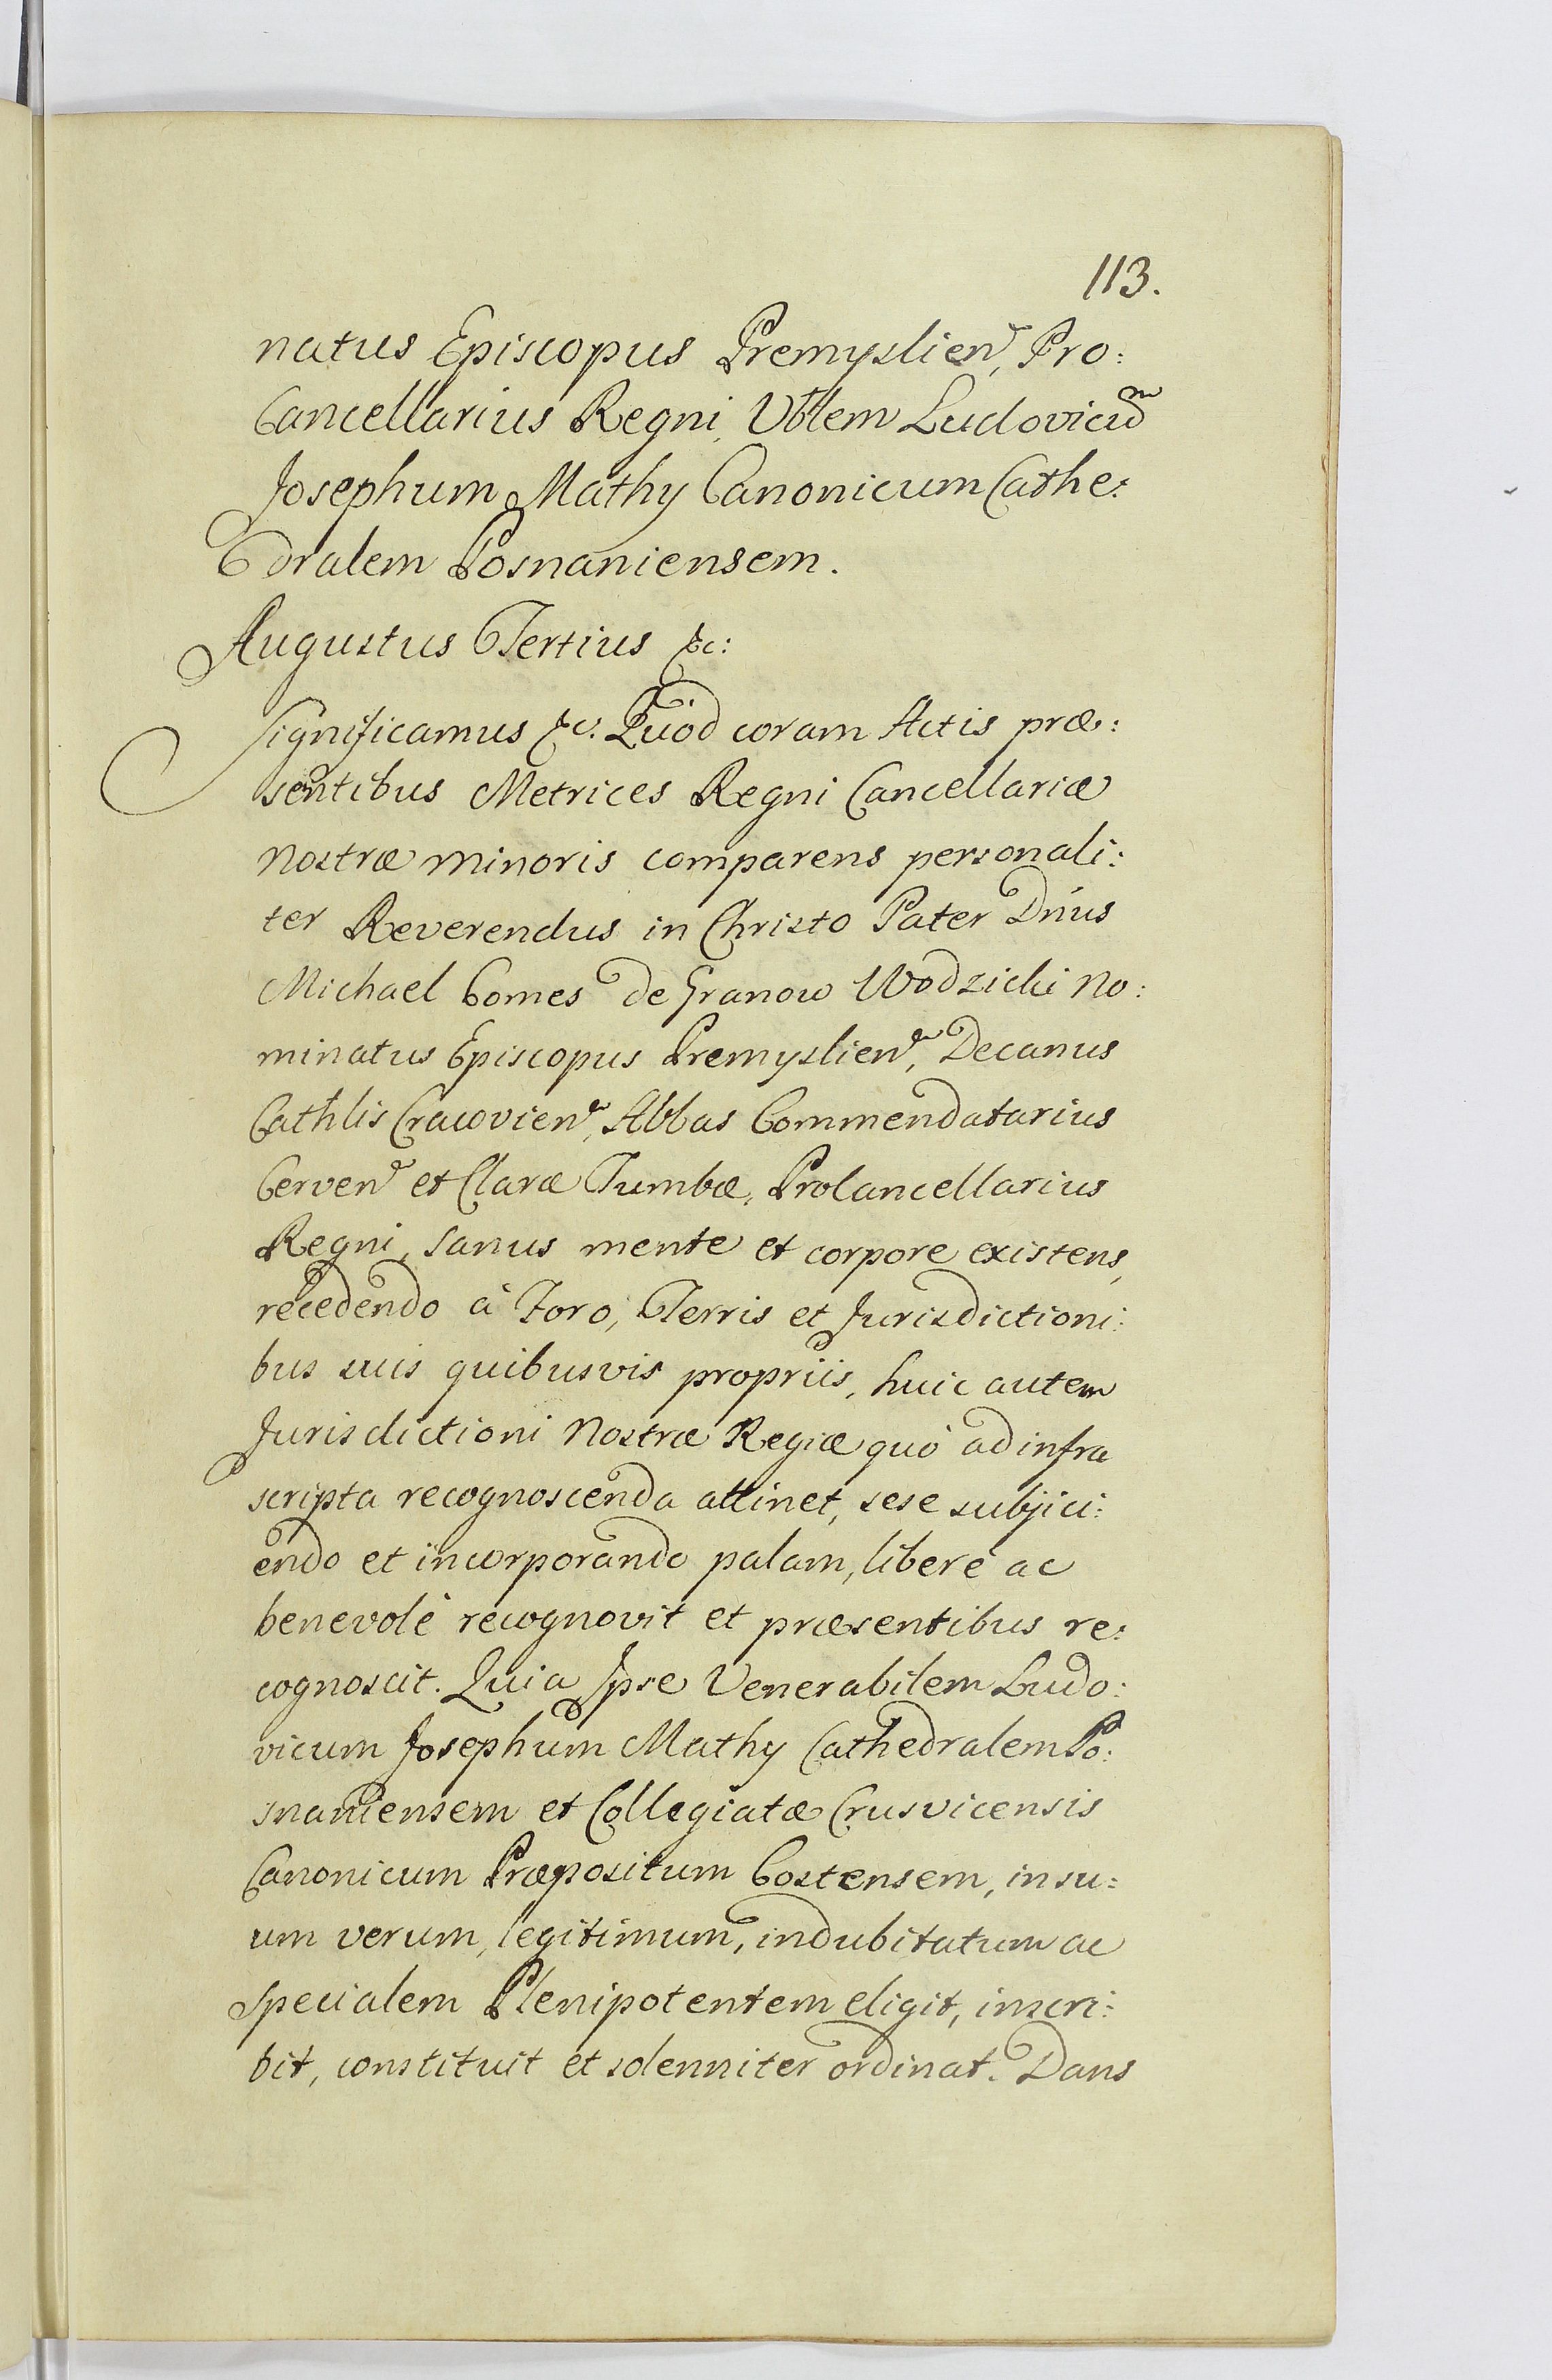 113.
natus Episcopus Premyslien, Pro:
Cancellarius Regni, Vblem Ludovicum
Josephum Mathy Canonicum Cathe:
dralem Posnaniensem.
Augustus Tertius &c:
Significamus &c. Quod coram Actis præ:
sentibus Metrices Regni Cancellariæ
Nostræ minoris comparens personali:
ter Reverendus in Christo Pater Dnus
Michael Comes de Granow Wodzicki No:
minatus Episcopus Premyslien, Decanus
Cathlis Cracovien, Abbas Commendatarius
Cerven et Claræ Tumbæ, ProCancellarius
Regni, sanus mente et corpore existens,
recedendo à Foro, Terris et Jurisdictioni:
bus suis quibusvis propriis, huic autem
Jurisdictioni Nostræ Regiæ quò ad infra
scripta recognoscenda attinet, sese subjici:
endo et incorporando palam, liberè ac
benevolè recognovit et præsentibus re:
cognoscit. Quia Ipse Venerabilem Ludo:
vicum Josephum Mathy Cathedralem Po:
snaniensem et Collegiatæ Crusvicensis
Canonicum Præpositum Costensem, in su:
um verum, legitimum, indubitatum ac
Specialem Plenipotentem eligit, inscri:
bit, constituit et solenniter ordinat. Dans